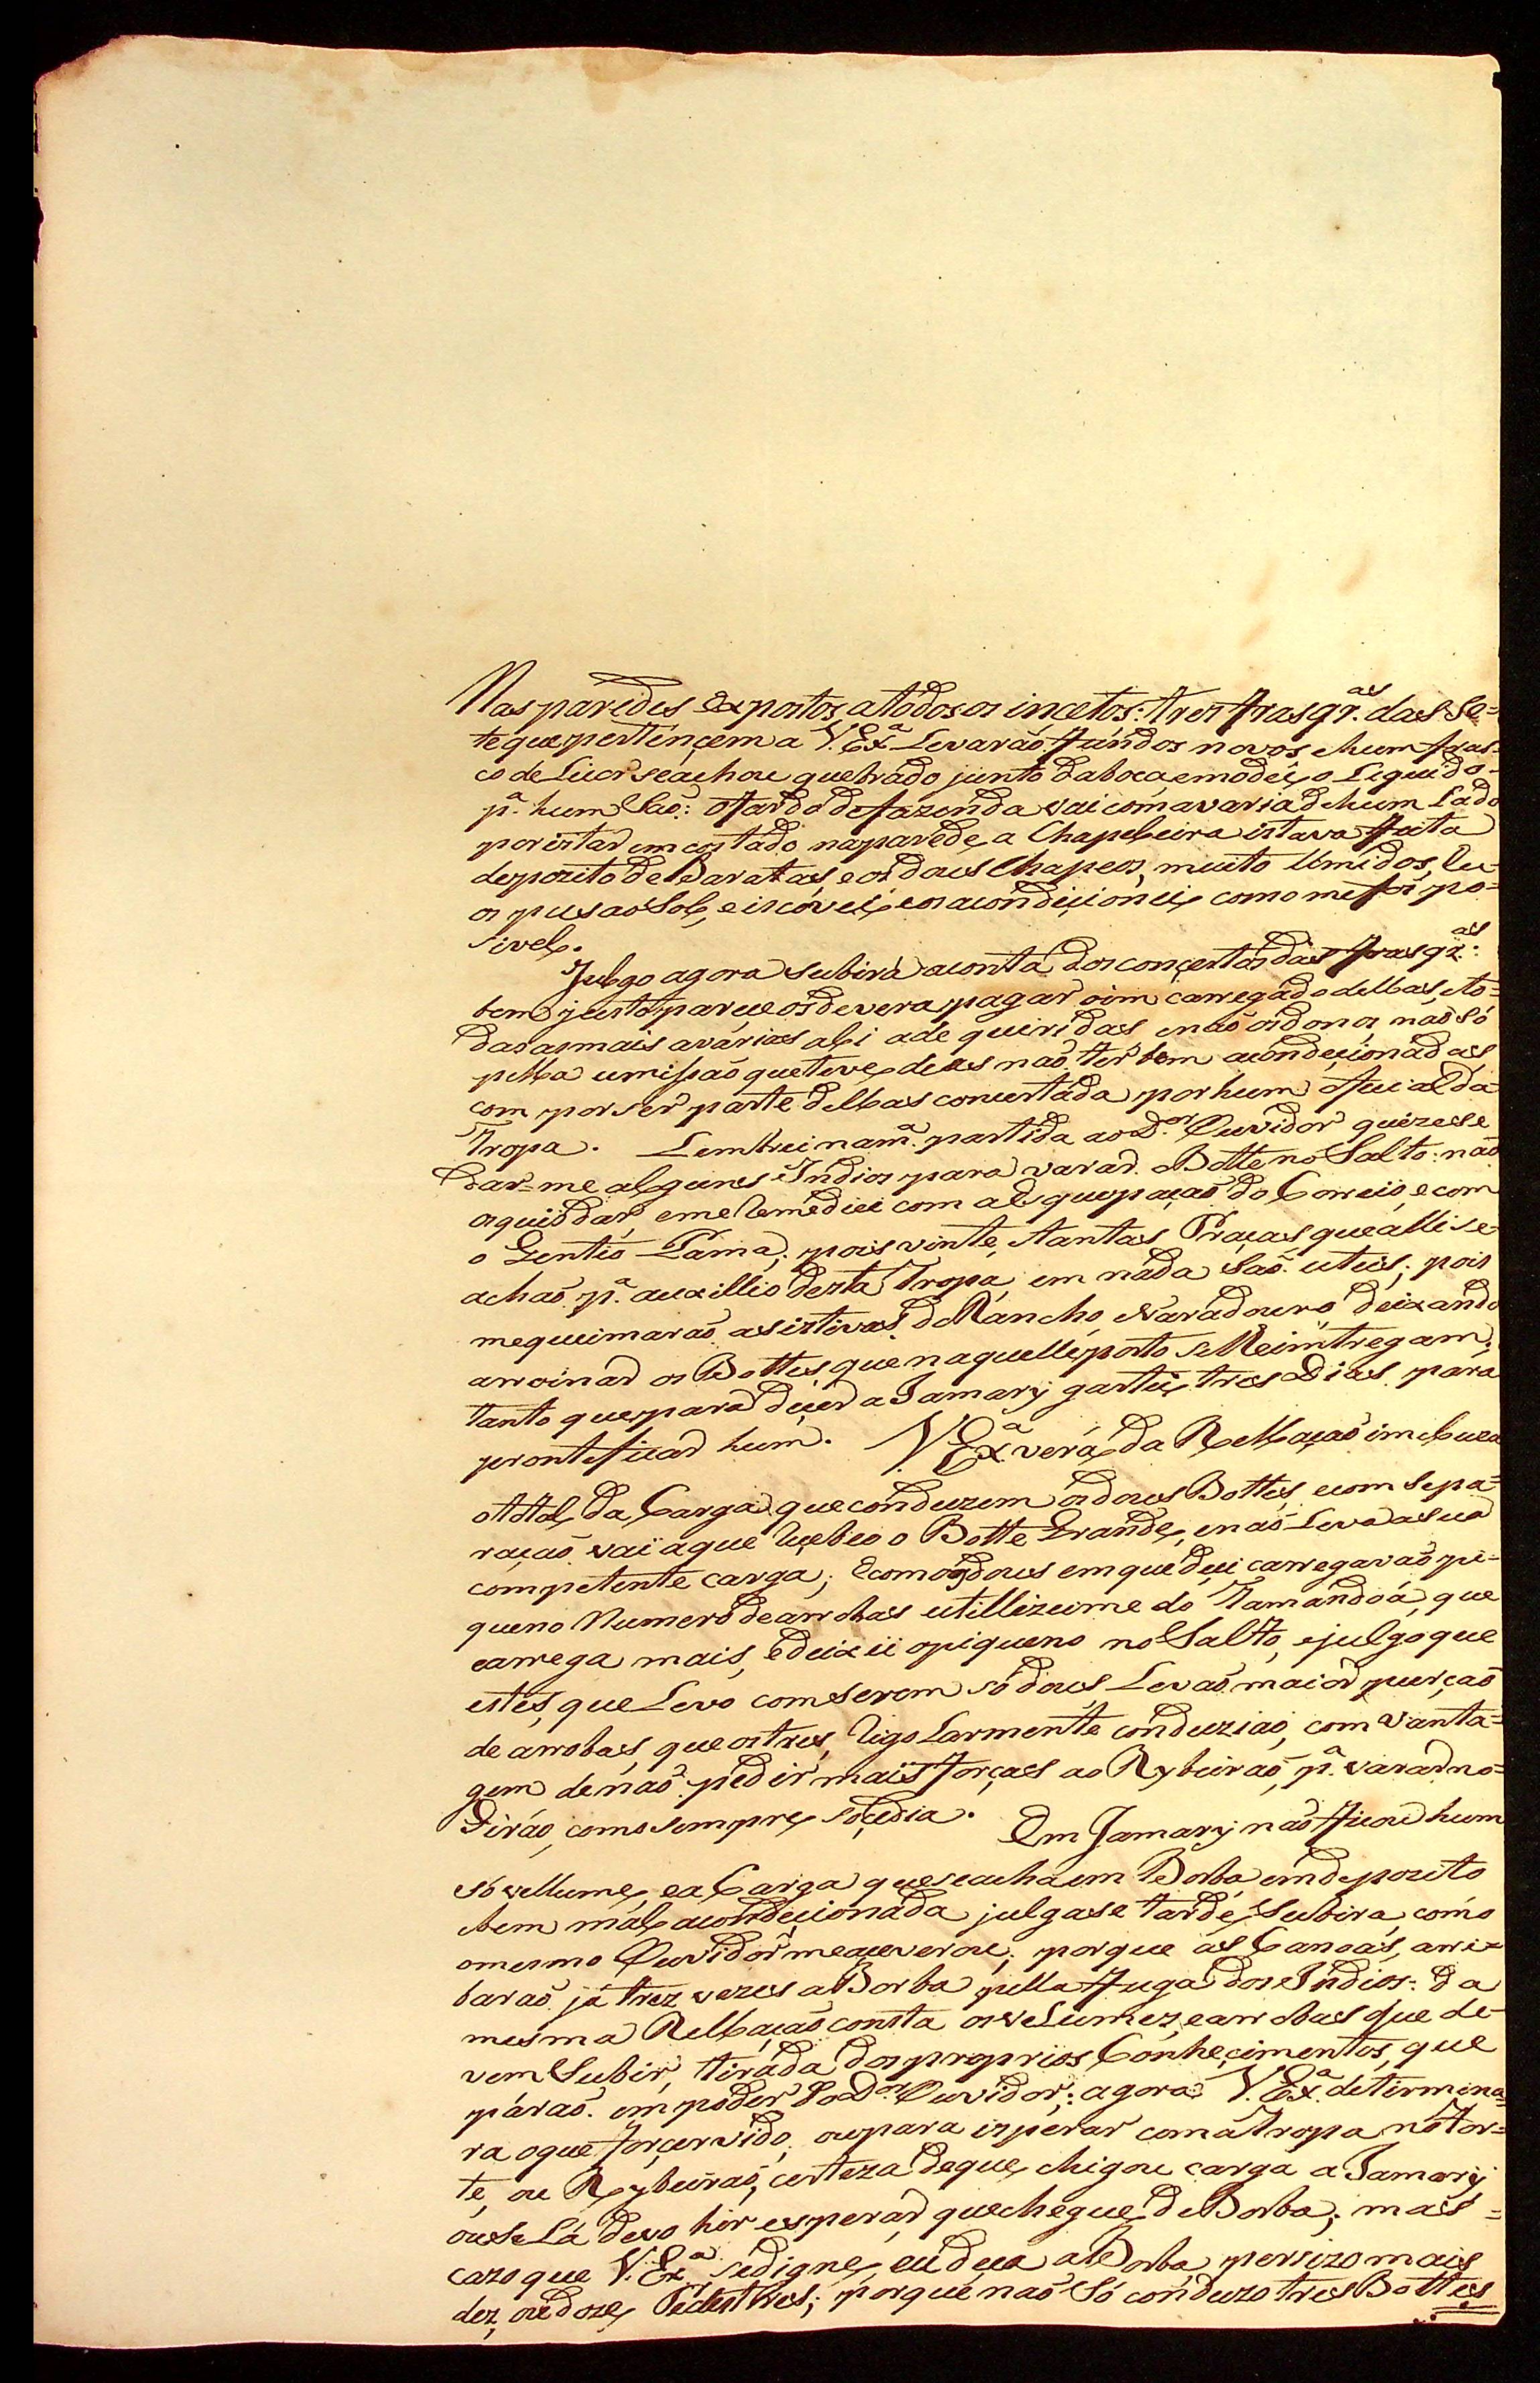 Nas paredes expostos a todos os incetos: tres frasqr.as das Se-
te que pertencem a V. Ex.a Levaraõ fundos novos e hum fras-
co de Licor se achou quebrado junto da boca, e mudei o Liquido
p.a hum Saõ: o fardo de fazenda vai com avaria de hum Lado
por estar emcostado na parede, a Chapeleira estava feita
depozito de Baratas, e os dous Chapeos, muito Umidos, eu
os pus ao Sol, e iscovei, e os acondicionei, como me foi po-
sivel.
Julgo agora subirá a conta dos concertos das frasqr.as:
bem justo paruce os devera pagar o im carregado dellas, e to-
das as mais avárias ali ade queridas, e naõ os donos, naõ só
pella umissaõ que teve, de as naõ ter bem acondecionadas
com por ser parte dellas concertada por hum oficial da
Tropa. Lembrei na m.a partida ao D.or Ouvidor quizese
dar-me alguns Indios para varar o Botte no Salto: naõ
os quis dar, e me remediei com a esquepaçaõ do Correio, e com
o Gentio Pama; pois vinte, e tantas Praças que alli se
achaõ p.a auxillio desta Tropa, em nada saõ uteis; pois
me queimaraõ as estivas do Rancho, e varadouro, deixando
arroinar os Bottes, que naquelle porto se Reintregam;
tanto que para decer a Jamary gastei tres Dias para
prontificar hum. V. Ex.a verá, da Rellaçaõ imcluza
o total da Carga que conduzem os dous Bottes, e com sepa-
raçaõ vai a que recebeo o Botte Grande, e naõ Leva a sua
competente carga; E como os dous em que deci carregavaõ pe-
queno Numero de arrobas utillizeime do Tamandoá, que
carrega mais, e deixei o piqueno no Salto, e julgo que
estes, que Levo com serem só dous Levaõ maior purçaõ
de arrobas, que os tres, rigolarmente conduziaõ, com vanta-
gem de naõ pedir mais forças ao Rybeiraõ, p.a varar no
Giráo, como sempre socedia. Em Jamary naõ ficou hum
só vellume, e a Carga que se acha em Borba em depozito
bem mal acondecionada julga se tarde, Subira, como
o mesmo Ouvidor me aseverou; porque as Canoas, arri-
baraõ já trez vezes a Borba pella fuga dos Indios: da
mesma Rellaçaõ consta os velumez, e arrobas que de-
vem Subir, tirada dos proprios Conhecimentos, que
páraõ em poder do D.or Ouvidor; agora V. Ex.a detirmina-
ra o que for servido, ou para isperar com a Tropa no For-
te, ou Rybeiraõ, certeza de que chigou carga a Jamary
ou se Lá devo hir esperar que chegue de Borba; mas
cazo que V. Ex.a se digne, eu deça a Borba, persizo mais
dez, ou doze, Pedestres; porque naõ Só conduzo tres Bottes